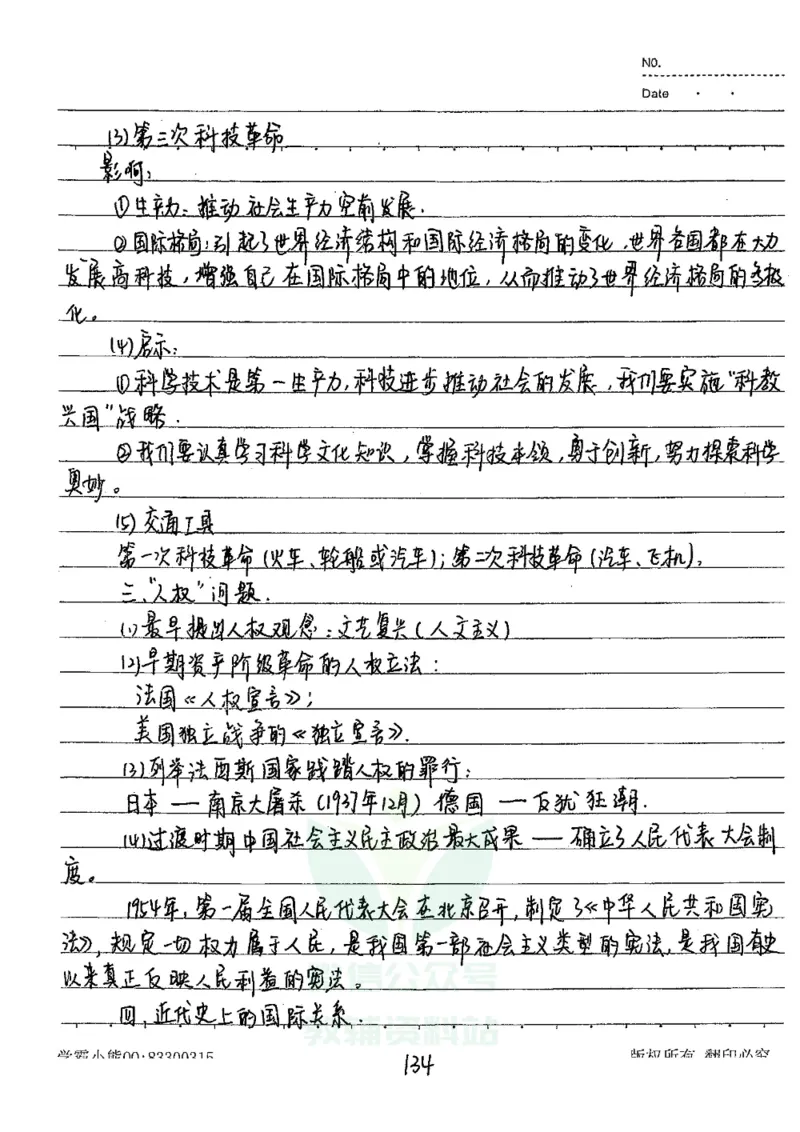 NO.
Date · ·
(3)第三次科技革命
影响:
①生产力:推动社会生产力空前发展.
②国际格局:引起了世界经济结构和国际经济格局的变化,世界各国都在大力
发展高科技,增强自己在国际格局中的地位,从而推动了世界经济格局的多极
化。
(4)启示:
①科学技术是第一生产力,科技进步推动社会的发展,我们要实施"科教
兴国"战略.
②我们要认真学习科学文化知识,掌握科技本领,勇于创新,努力探索科学
奥妙。
(5)交通工具
第一次科技革命(火车、轮船或汽车);第二次科技革命(汽车、飞机),
三、"人权"问题.
(1)最早提出人权观念:文艺复兴(人文主义)
(2)早期资产阶级革命的人权立法:
法国《人权宣言》;
美国独立战争的《独立宣言》.
(3)列举法西斯国家践踏人权的罪行:
日本——南京大屠杀(1937年12月)德国——反犹狂潮.
(4)过渡时期中国社会主义民主政治最大成果——确立了人民代表大会制
度。
1954年,第一届全国人民代表大会在北京召开,制定了《中华人民共和国宪
法》,规定一切权力属于人民,是我国第一部社会主义类型的宪法,是我国有史
以来真正反映人民利益的宪法。
四、近代史上的国际关系.
教辅资料站
学霸小熊QQ:83300315
134
版权所有 翻印必究